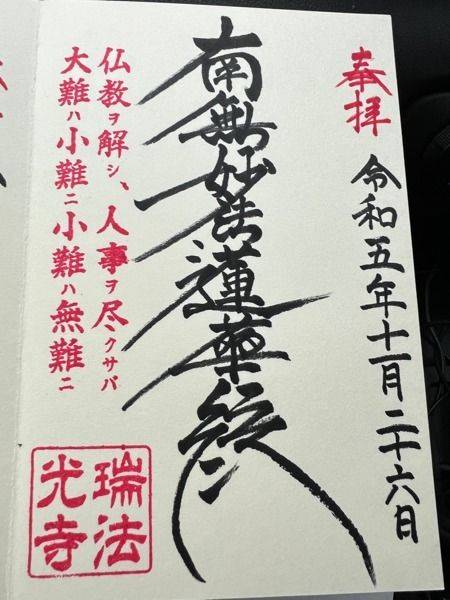 奉拝
令和五年十一月二十六日
南無妙法蓮華経
仏教ヲ解シ、人事ヲ尽クサバ
大難ハ小難ニ小難ハ無難ニ
瑞法
光寺